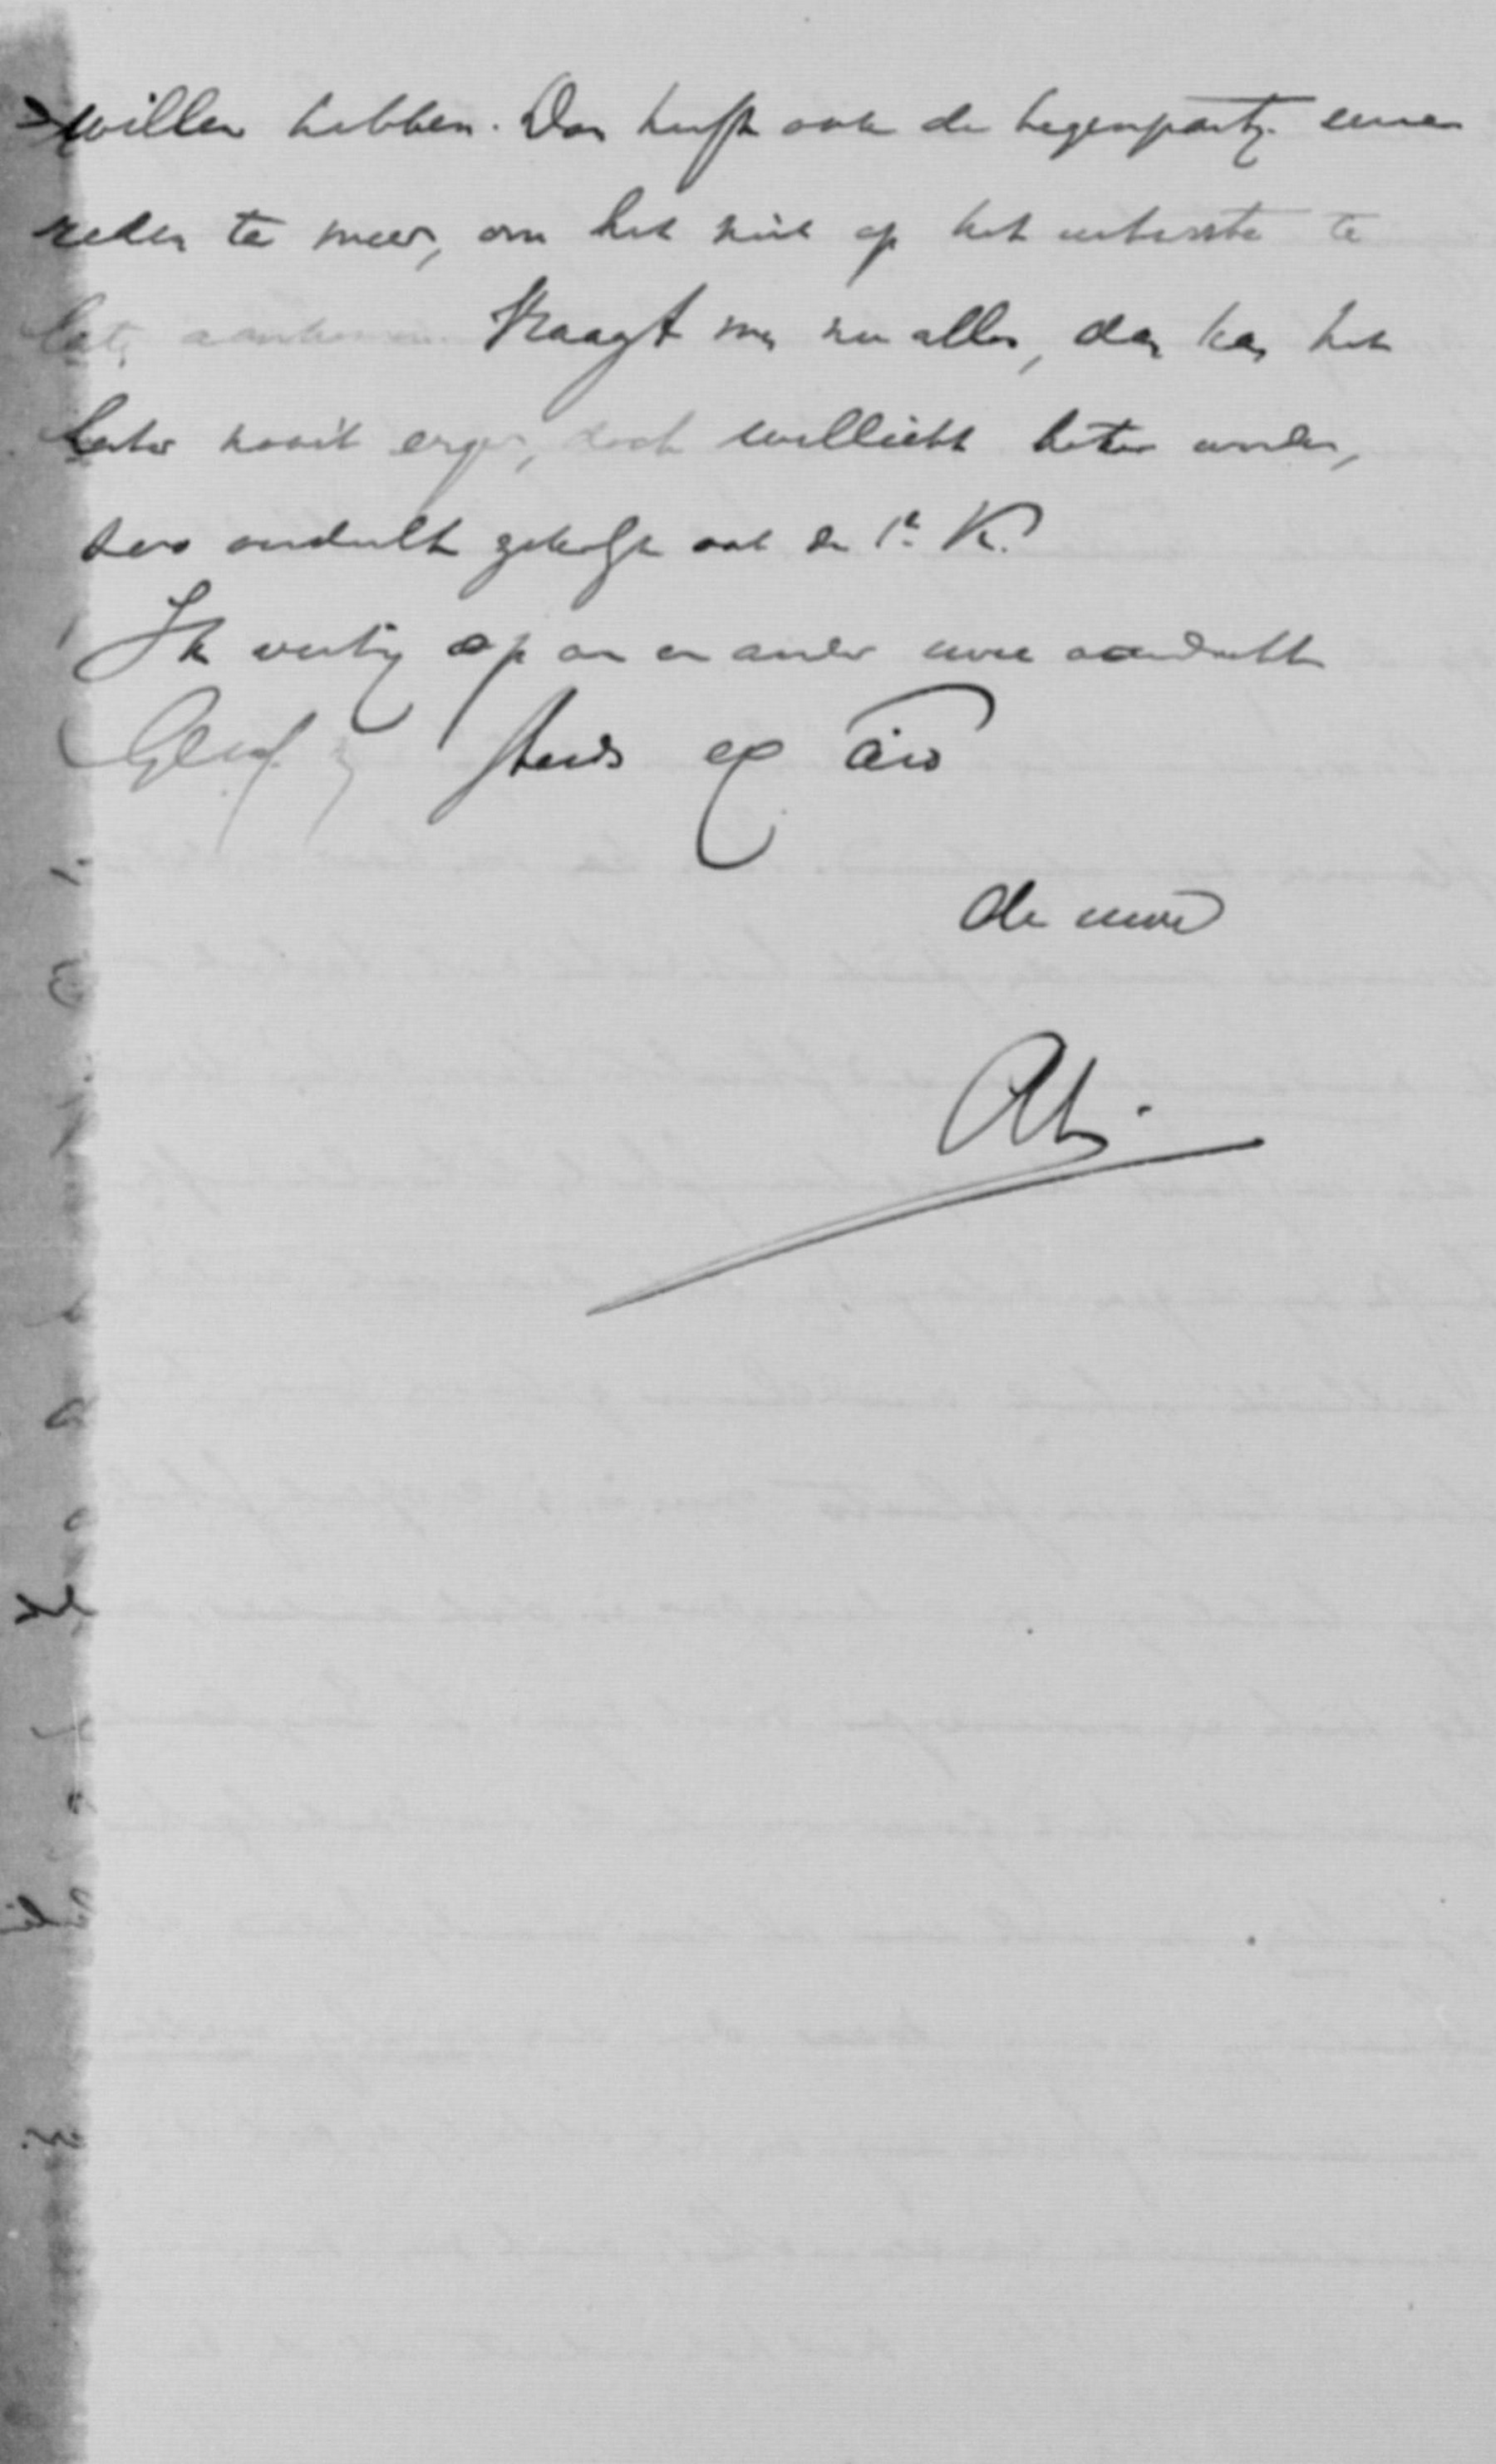 willen hebben. Dan heeft ook de tegenpartij eene
reden te meer, om het niet op het uiterste te
laten aankomen. Vraagt men nu alles, dan kan het
later nooit erger, doch wellicht beter worden,
de 1e K.
Ik vestig op een en ander uwe aandacht
Geloof mij steeds
de uwe